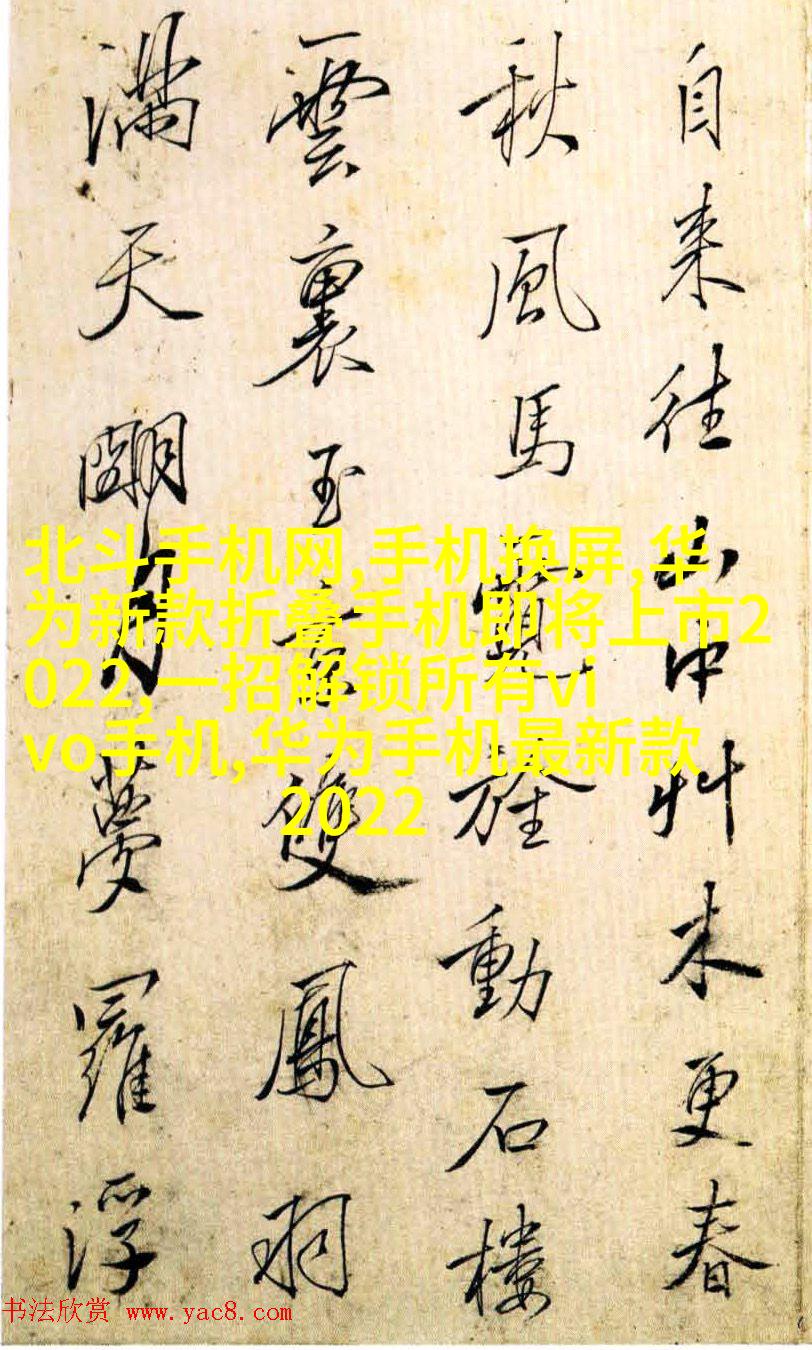 自来往山中艸木更春
秋風馬動石樓
雲裏玉雙鳳羽
滿天明月夢羅浮
北斗手机网,手机换屏,华
为新款折叠手机即将上市2
022,一招解锁所有vi
vo手机,华为手机最新款
2022
书法欣赏 www.yac8.com